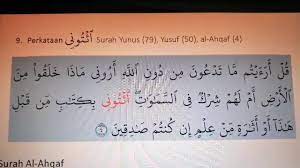 9. Perkataan ٱئۡتُونِي Surah Yunus (79), Yusuf (50), al-Ahqaf (4)
قُلۡ أَرَءَيۡتُم مَّا تَدۡعُونَ مِن دُونِ ٱللَّهِ أَرُونِي مَاذَا خَلَقُواْ مِنَ
ٱلۡأَرۡضِ أَمۡ لَهُمۡ شِرۡكٞ فِي ٱلسَّمَٰوَٰتِۖ ٱئۡتُونِي بِكِتَٰبٖ مِّن قَبۡلِ
هَٰذَآ أَوۡ أَثَٰرَةٖ مِّنۡ عِلۡمٍ إِن كُنتُمۡ صَٰدِقِينَ ٤
Surah Al-Ahqaf